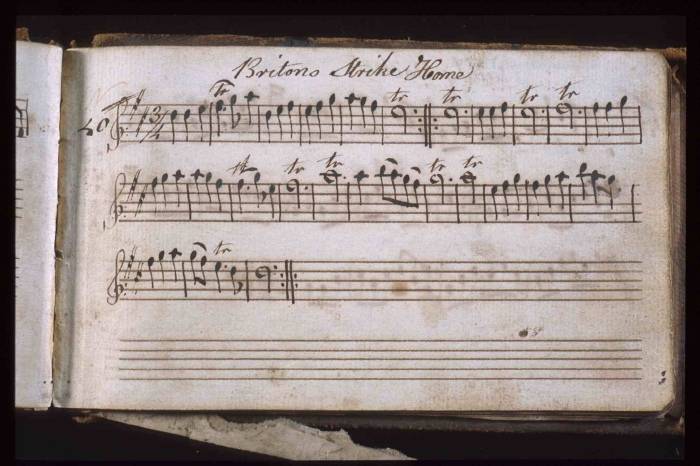 Britons Strike Home
tr tr tr tr tr
3/4
tr tr tr tr tr
tr